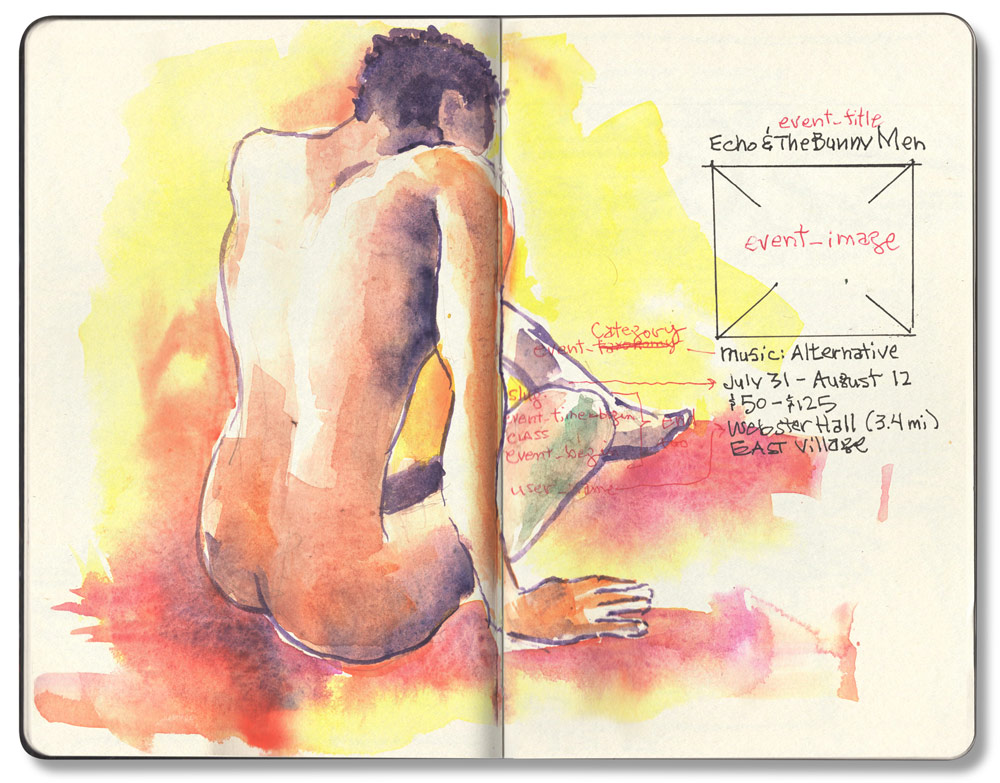 event_title
Echo & The Bunny Men
event_image
Category
event_taxonomy
music: Alternative
July 31 - August 12
$50 - $125
Webster Hall (3.4 mi)
EAST Village
slug:
event_time_begin
CLASS
user_name